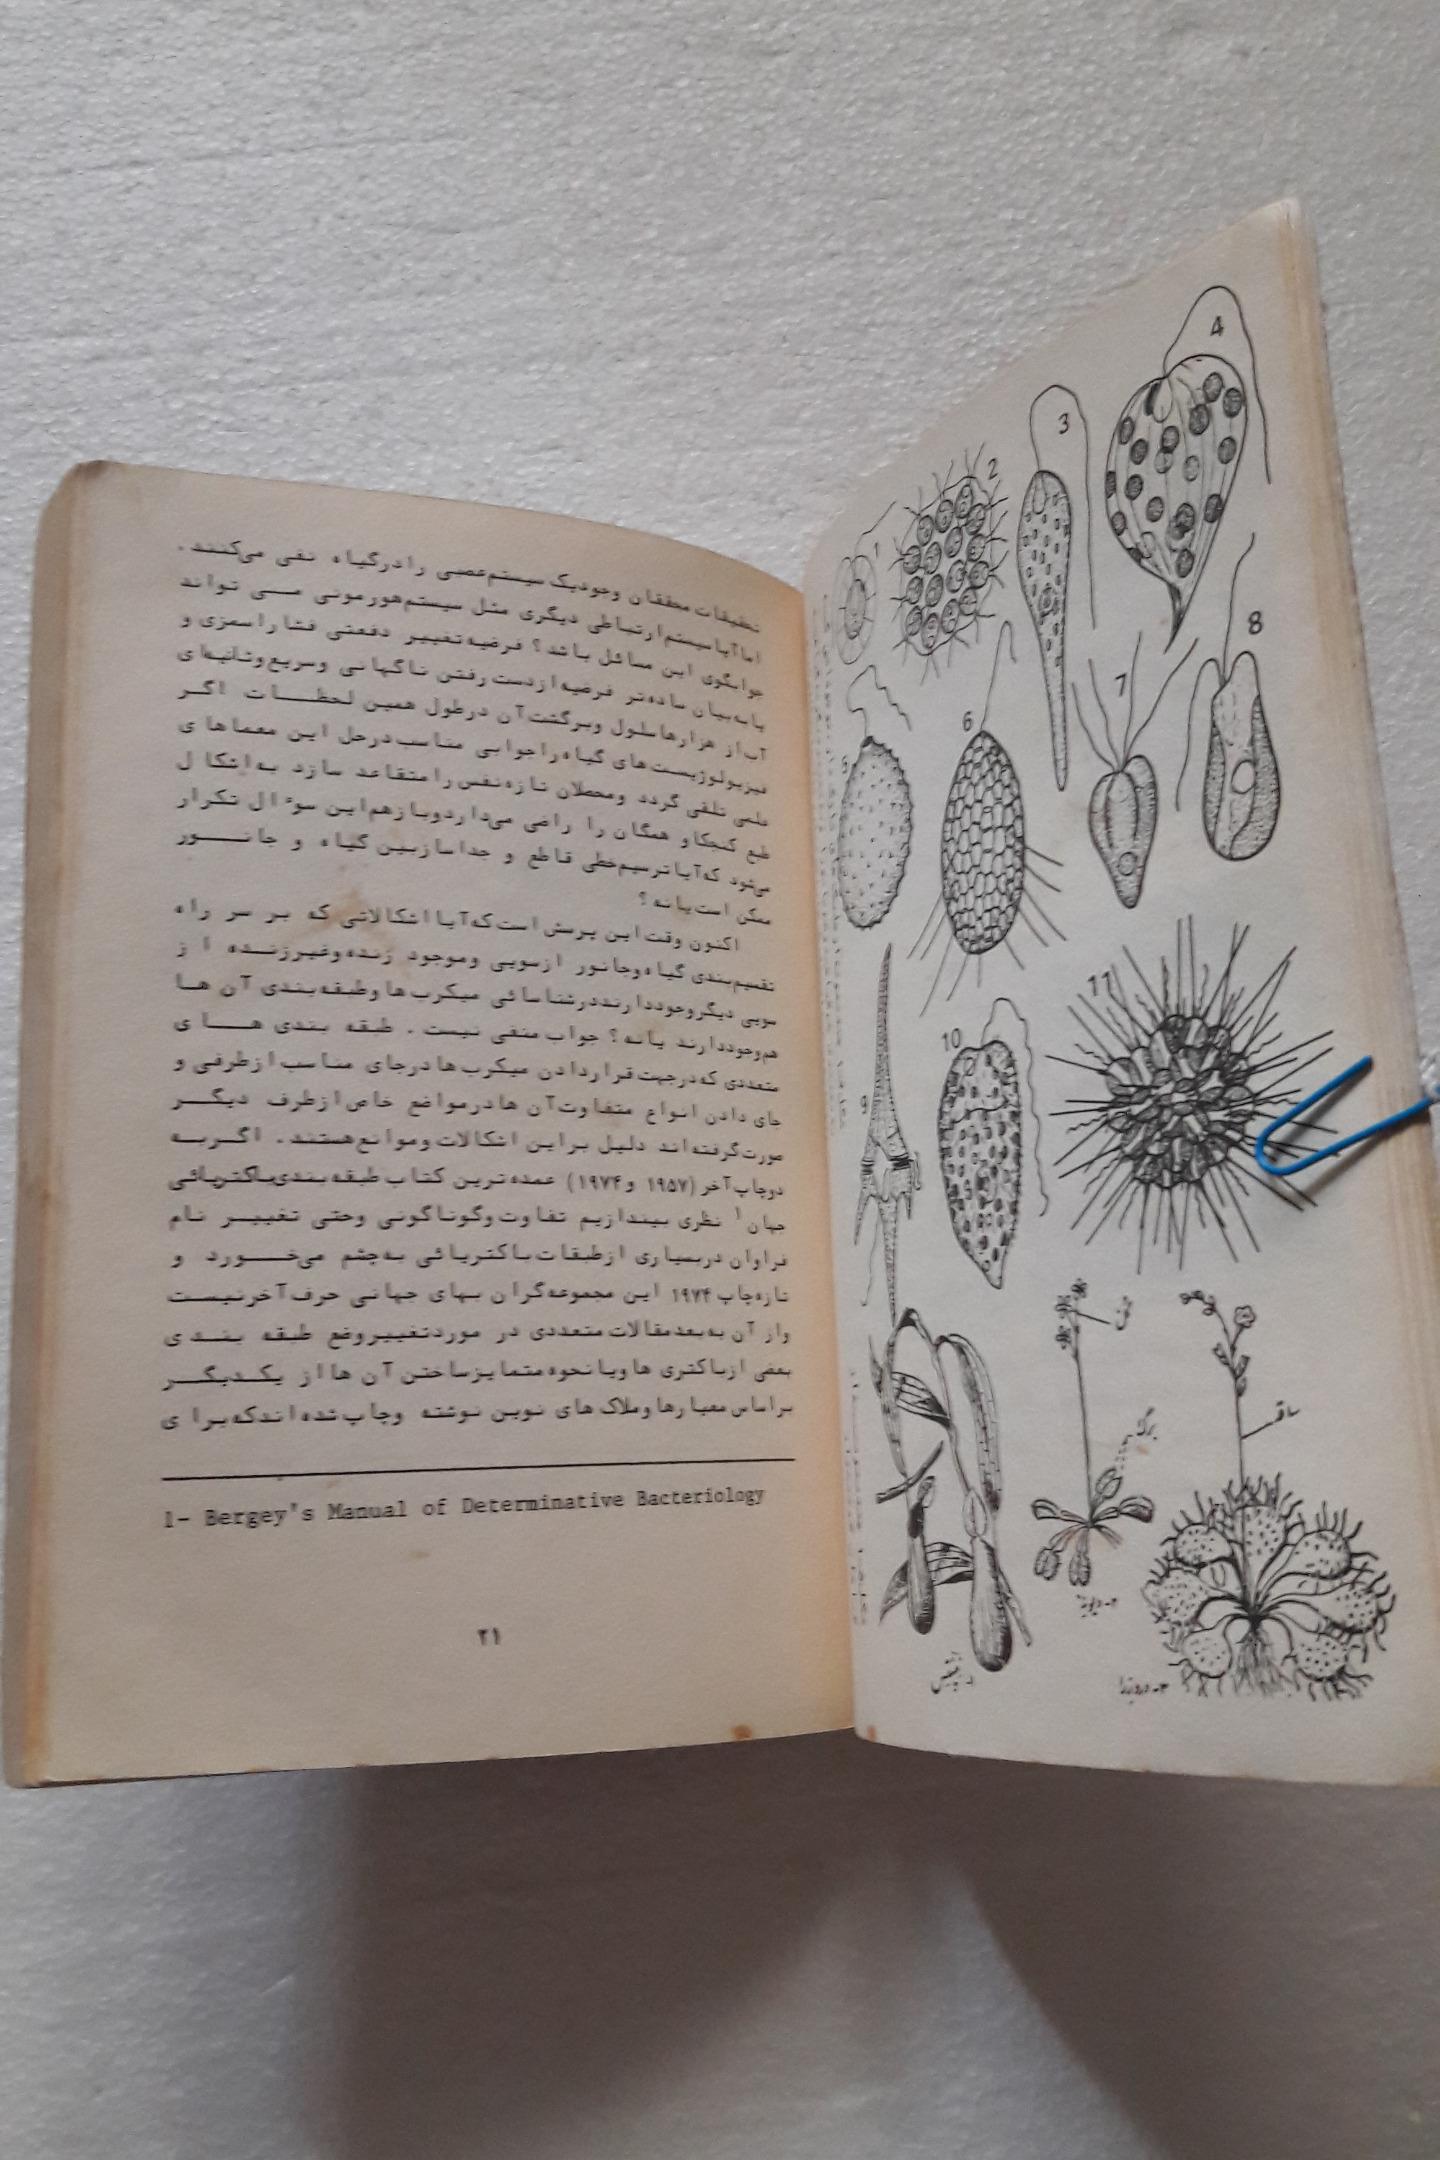 تحقیقات محققان وجودیک سیستم‌عصبی رادرگیاه نفی می‌کنند.
اماآیاسیستم‌ارتباطی دیگری مثل سیستم‌هورمونی مـی تواند
جوابگوی این مسائل باشد؟ فرضیه‌تغییر دفعتی فشاراسمزی و
یابه‌بیان ساده‌تر فرضیه‌ازدست رفتن ناگهانی وسریع‌وثانیه‌ای
آب‌از هزارهاسلول وبرگشت‌آن درطول همین لحظـات اگـر
فیزیولوژیست‌های گیاه‌راجوابی مناسب‌درحل این معماهای
علمی تلقی گردد ومحصلان تازه‌نفس رامتقاعد سازد به‌اشکال
طبع کنجکاو همگان را راضی می‌داردوبازهم‌این سوءال تکرار
می‌شود که‌آیاترسیم‌خطی قاطع و جداسازبین گیاه و جانــور
ممکن است‌یانه؟
اکنون وقت‌این پرسش است‌که‌آیااشکالاتی که بر سر راه
تقسیم‌بندی گیاه‌وجانور ازسویی وموجود زنده‌وغیرزنـده از
سویی دیگروجوددارنددرشناسائی میکرب‌ها وطبقه‌بندی آن هـا
هم‌وجوددارند یانه؟ جواب منفی نیست. طبقه بندی هــای
متعددی که‌درجهت قراردادن میکرب‌ها درجای مناسب ازطرفی و
جای دادن انواع متفاوت‌آن هادرمواضع خاص‌ازطرف دیگـر
صورت‌گرفته‌اند دلیل براین اشکالات وموانع‌هستند. اگـربـه
دوچاپ‌آخر (۱۹۵۷ و ۱۹۷۴) عمده‌ترین کتاب طبقه‌بندی‌باکتریائی
جهان۱ نظری بیندازیم تفاوت وگوناگونی وحتی تغییـر نام
فراوان دربسیاری ازطبقات‌باکتریائی به‌چشم می‌خـورد و
تازه‌چاپ ۱۹۷۴ این مجموعه‌گران بهای جهانی حرف‌آخرنیست
واز آن به‌بعدمقالات متعددی در موردتغییروضع طبقه بنـدی
بعضی ازباکتری هاویانحوه متمایزساختن آن هااز یکـدیگـر
براساس معیارها وملاک های نوین نوشته وچاپ شده‌اندکه‌برای
1- Bergey's Manual of Determinative Bacteriology
۲۱
1
2
3
4
5
6
7
8
9
10
11
گل
برگ
ساقه